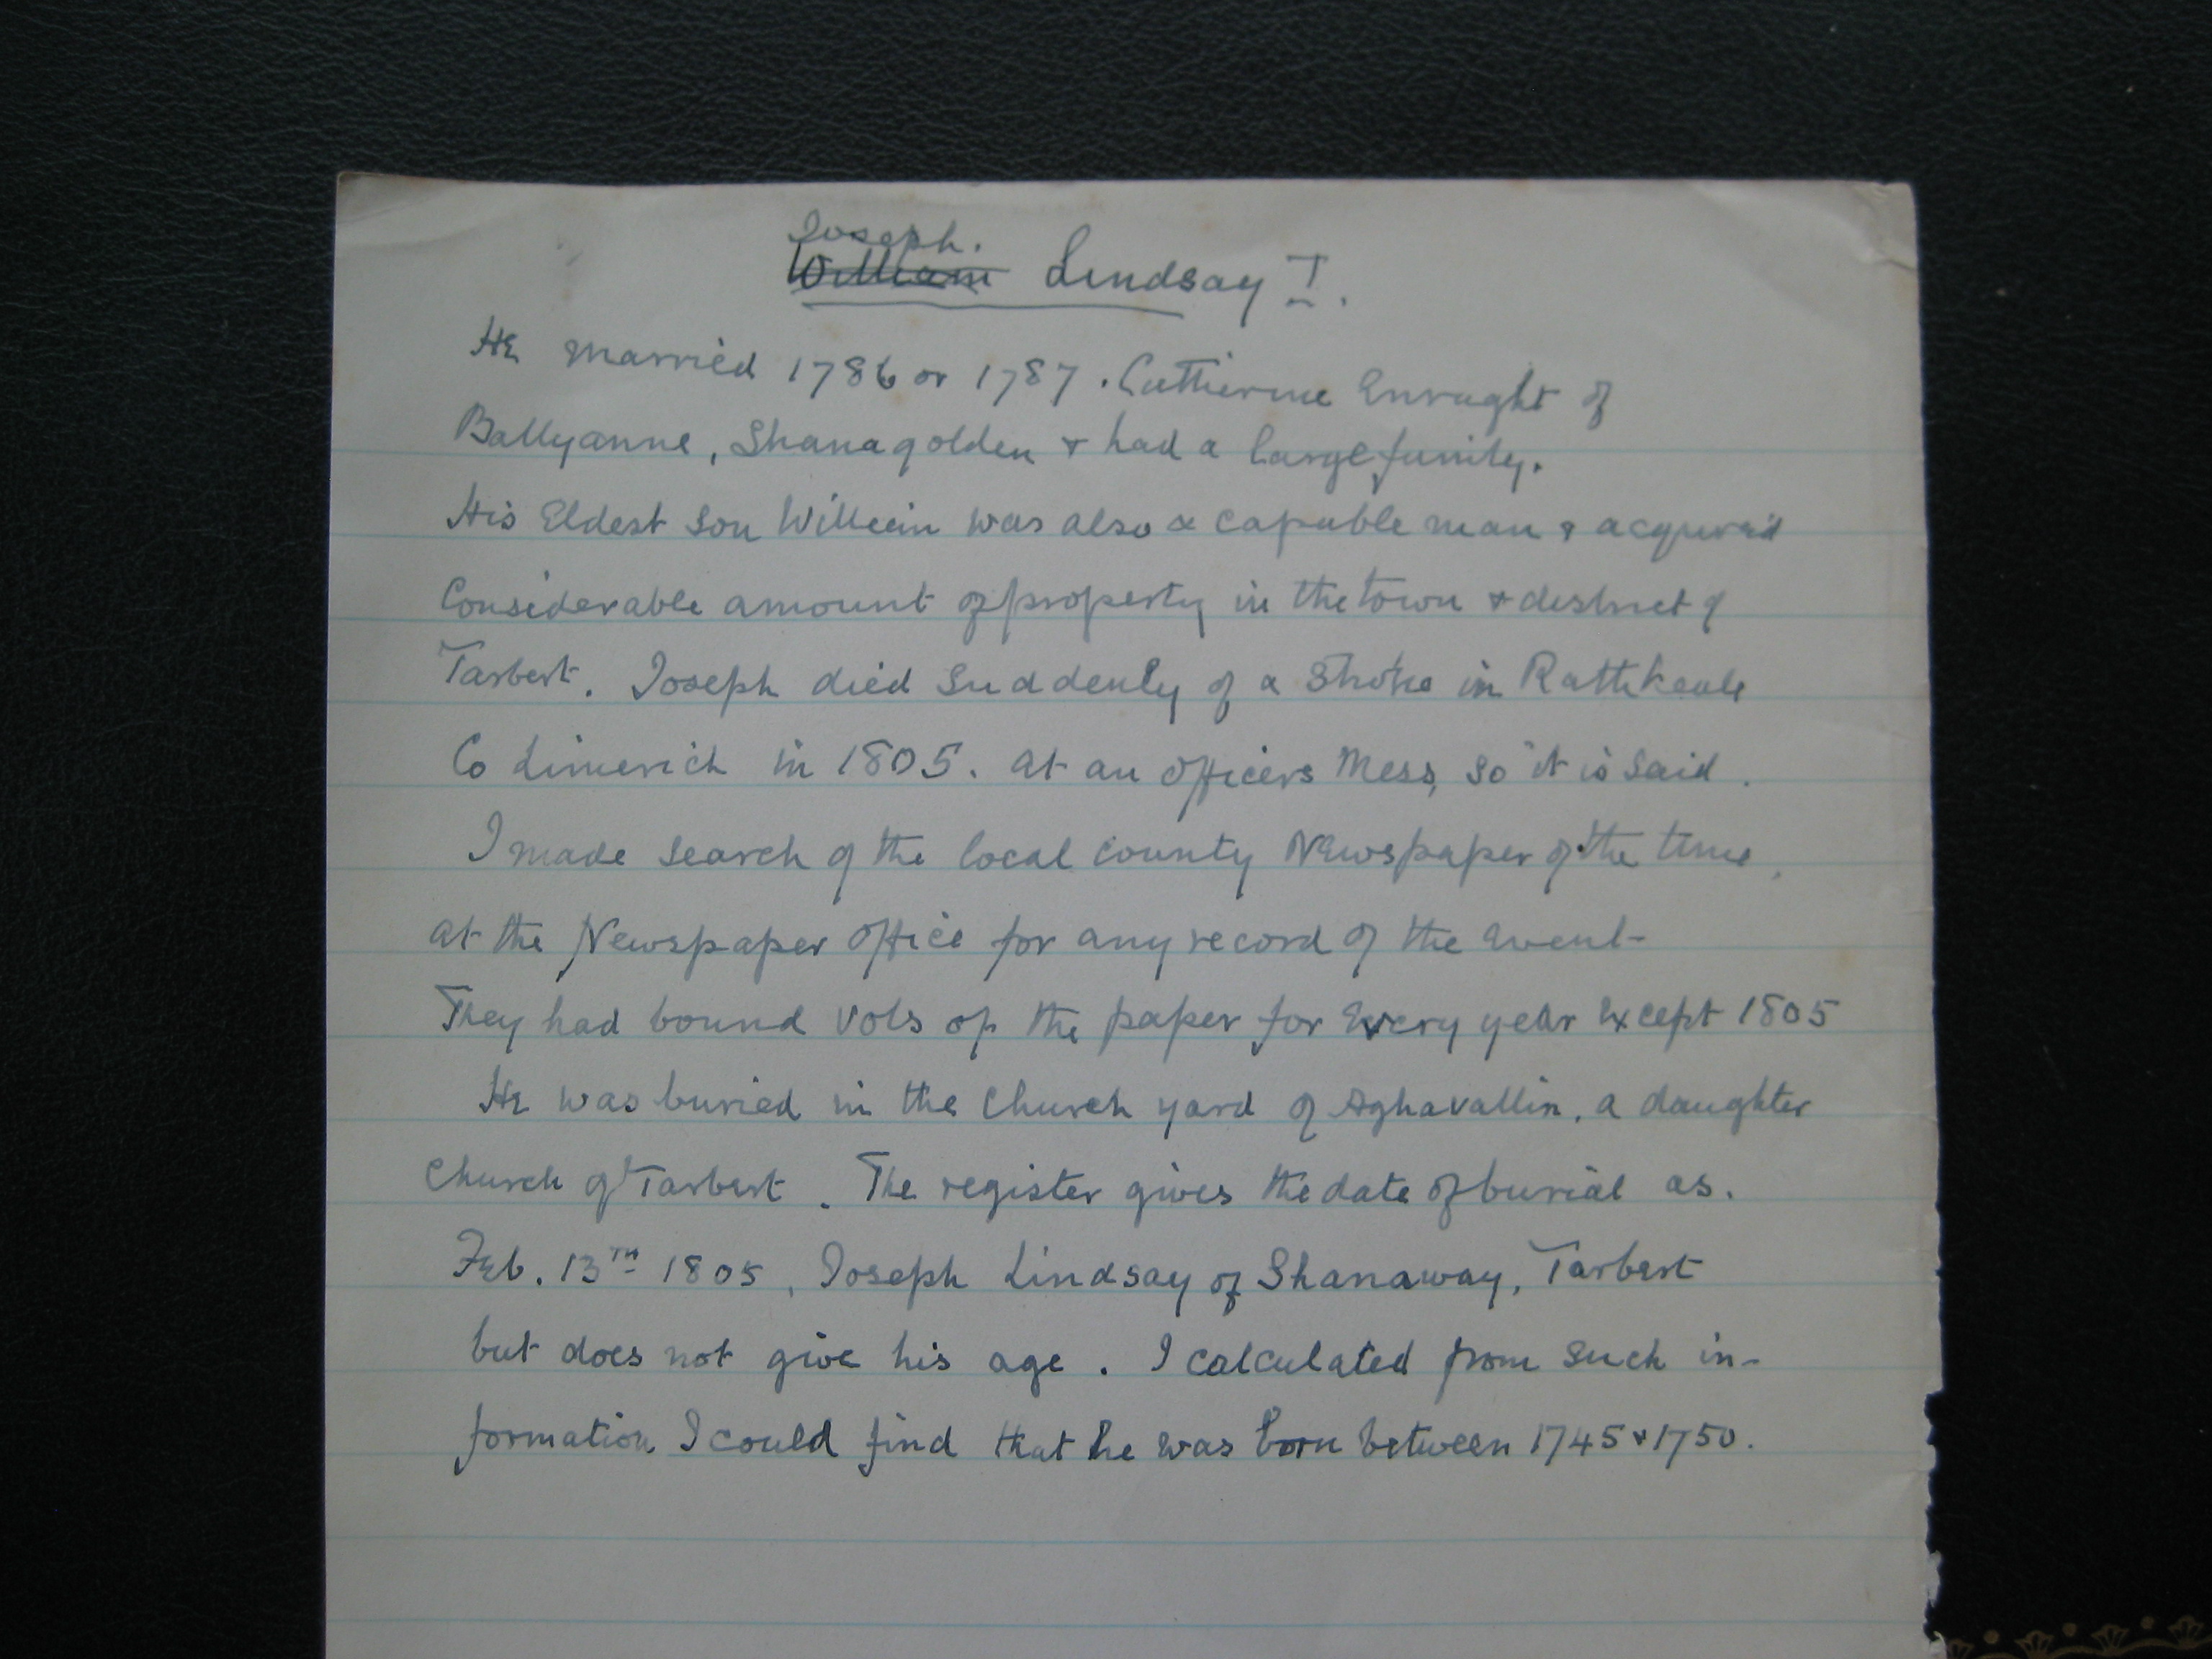 Joseph.
William Lindsay I.
He married 1786 or 1787. Catherine Enraght of
Ballyanne, Shanagolden & had a large family.
His Eldest son William was also a capable man & acquired
Considerable amount of property in the town & district of
Tarbert. Joseph died suddenly of a Stroke in Rathkeale
Co Limerick in 1805. at an Officers Mess, so it is said.
I made search of the local county Newspaper of the time,
at the Newspaper office for any record of the Event-
They had bound vols of the paper for Every year Except 1805
He was buried in the Church yard of Aghavallin, a daughter
Church of Tarbert. The register gives the date of burial as.
Feb. 13TH 1805, Joseph Lindsay of Shanaway, Tarbert
but does not give his age. I calculated from such in-
formation I could find that he was born between 1745 & 1750.